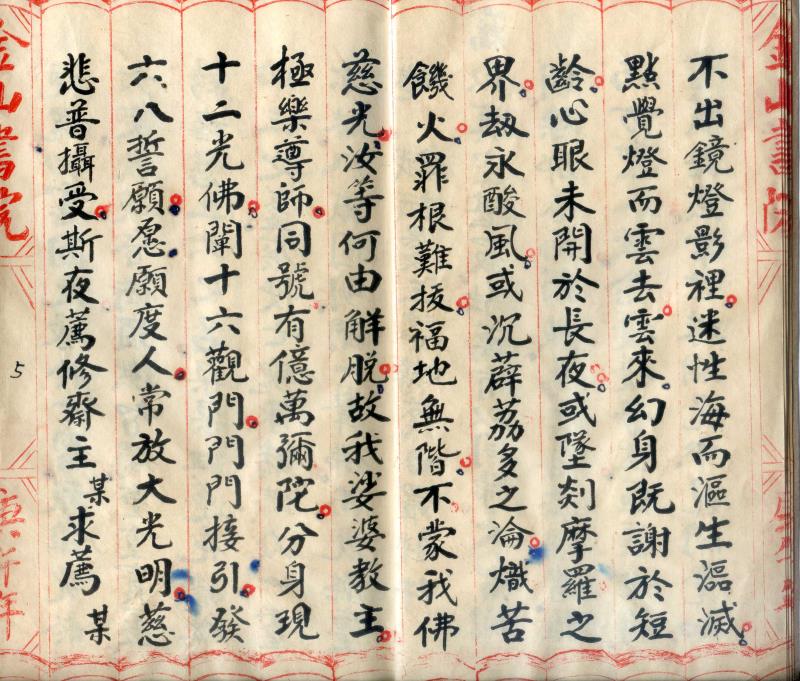 不出鏡燈影裡迷性海而漚生漚滅
點覺燈而雲去雲來幻身既謝於短
齡心眼未開於長夜或墜剡摩羅之
界劫永酸風或沉薜荔多之淪熾苦
饑火罪根難拔福地無階不蒙我佛
慈光汝等何由解脫故我娑婆教主
極樂導師同號有億萬彌陀分身現
十二光佛闡十六觀門門門接引發
六八誓願愿願度人常放大光明慈
悲普攝受斯夜薦修齋主某求薦某
金山書院
金山書院
5
庚午年